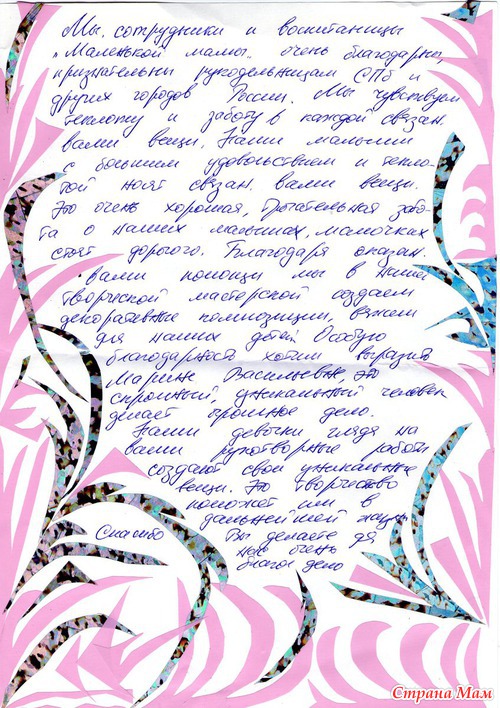 Мы, сотрудники и воспитанницы
"Маленькой мамы" очень благодарны,
признательны рукодельницам СПб и
других городов России. Мы чувствуем
теплоту и заботу в каждой связан.
вами вещи. Наши малыши
с большим удовольствием и тепло-
той носят связан. вами вещи.
Это очень хорошая, трогательная забо-
та о наших малышах, мамочках
стоит дорогого. Благодаря оказан.
вами помощи мы в нашей
творческой мастерской создаем
декоративные композиции, вяжем
для наших детей. Особую
благодарность хотим выразить
Марине Васильевне, это
скромный, уникальный человек
делает огромное дело.
Наши девочки глядя на
вами рукотворные работы
создают свои уникальные
вещи. Это творчество
поможет им в
дальнейшей жизни
Спасибо Вы делаете для
нас очень
благое дело
Страна Мам